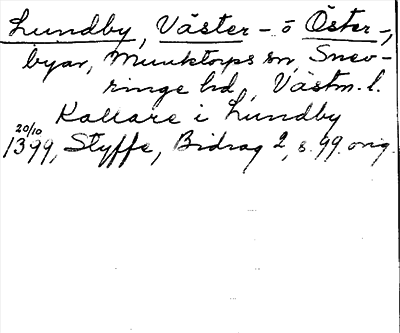 Lundby, Väster- o Öster-,
byar, Munktorps sn, Snev-
ringe hd, Västm. l.
Kallare i Lundby
20/10
1399, Styffe, Bidrag 2, s. 99. orig.